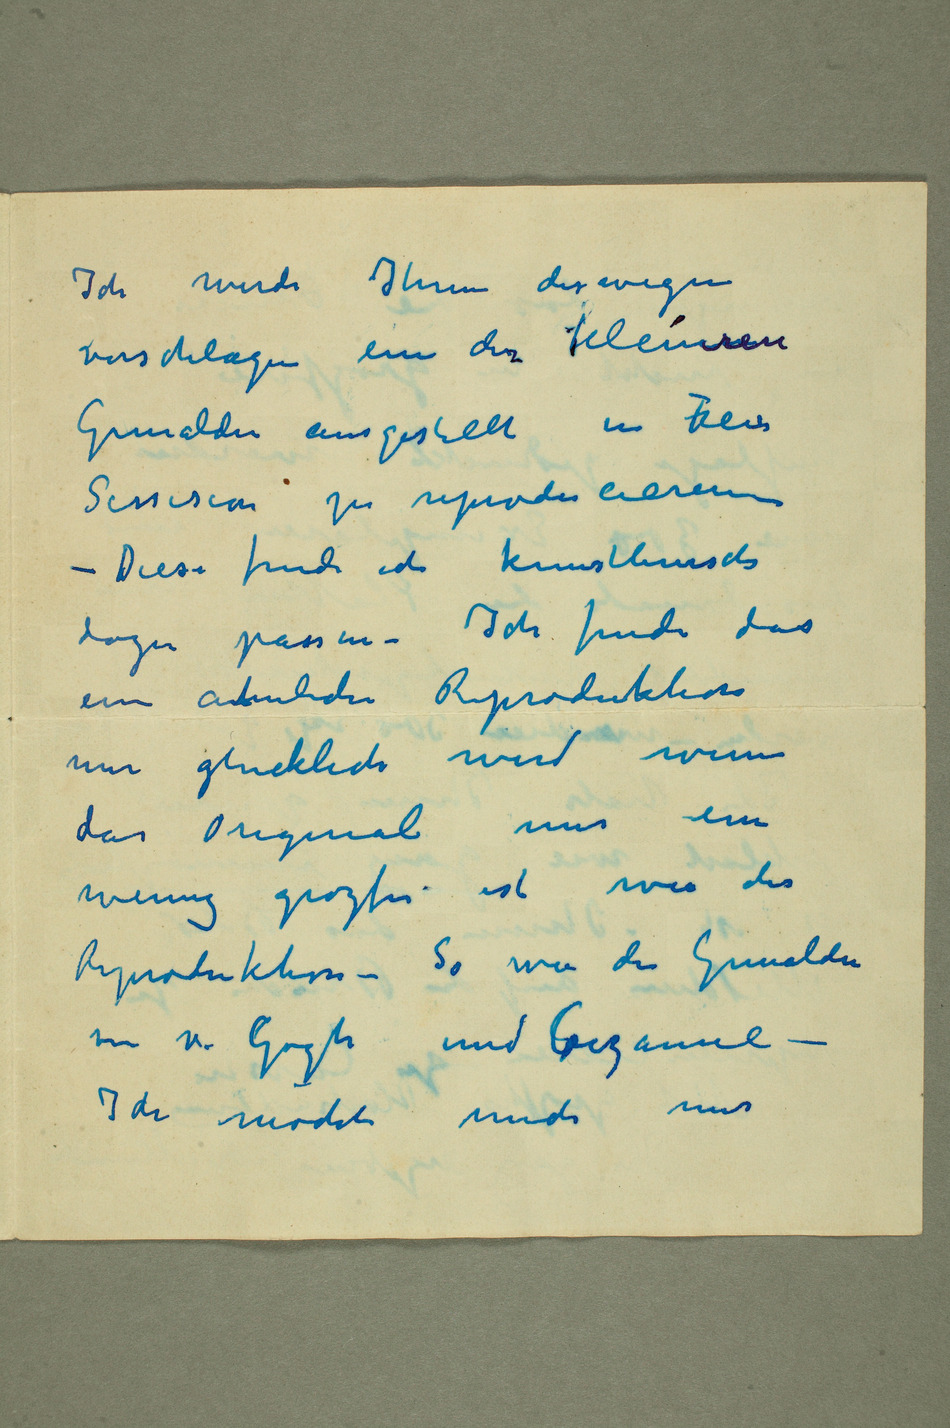 Ich werde Ihnen deswegen
vorschlagen ein der kleineren
Gemälder ausgestellt in
Sessision zu reproducieren
– Diese finde ich kunstlerisch
dazu passen – Ich finde das
eine ähnliche Reproduktion
nur glucklich wird wenn
das Original nur ein
wenig grozser ist wie die
Reproduktion – So wie die Gemalder
von v. Gogh und Cezanne –
Ich möchte mich nur